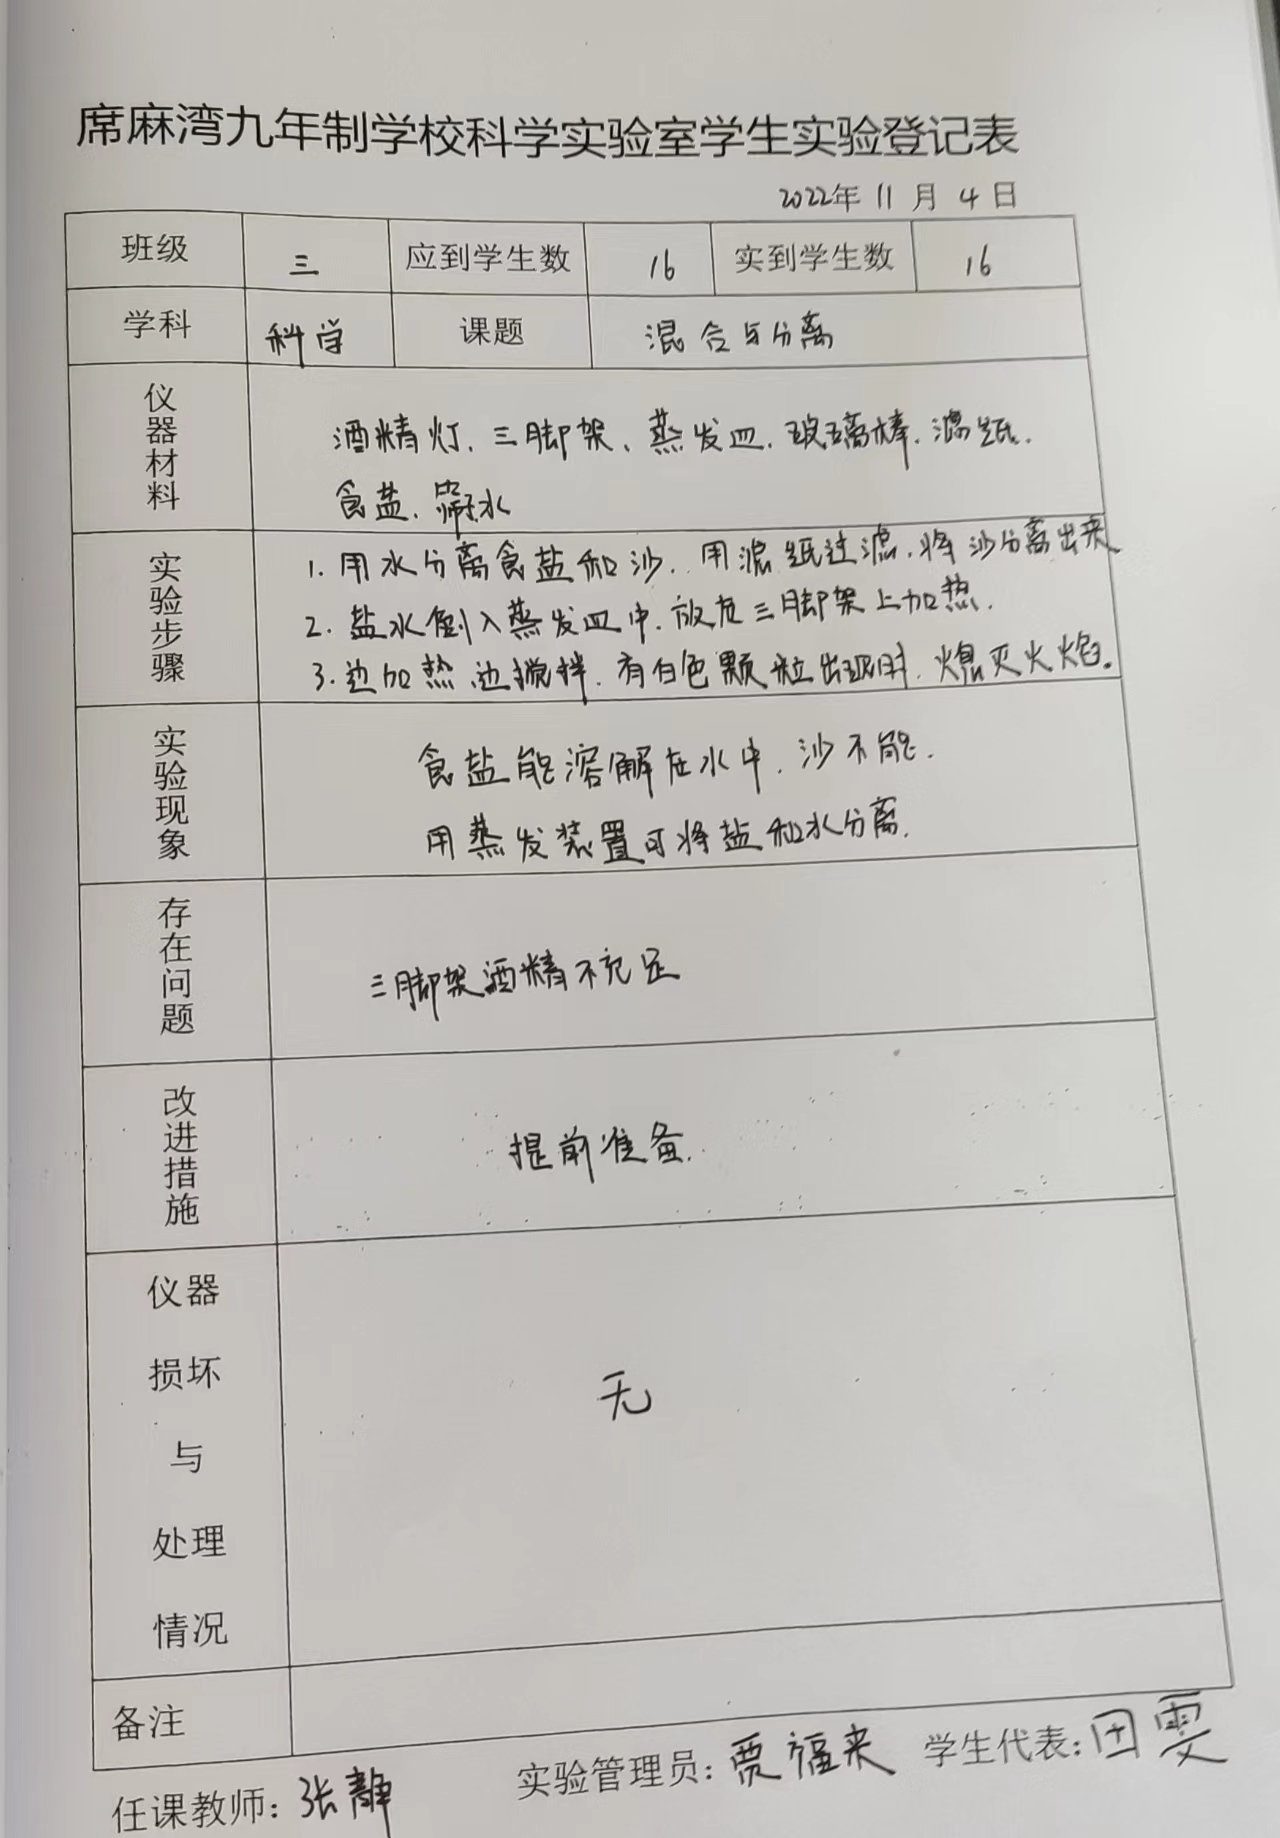 席麻湾九年制学校科学实验室学生实验登记表
2022年 11 月 4 日
班级 三 应到学生数 16 实到学生数 16
学科 科学 课题 混合与分离
仪器材料
酒精灯、三脚架、蒸发皿、玻璃棒、滤纸、
食盐、水
实验步骤
1. 用水分离食盐和沙、用滤纸过滤、将沙分离出来
2. 盐水倒入蒸发皿中、放在三脚架上加热.
3. 边加热、边搅拌、有白色颗粒出现时、熄灭火焰。
实验现象
食盐能溶解在水中、沙不能.
用蒸发装置可将盐和水分离.
存在问题
三脚架酒精不充足
改进措施
提前准备.
仪器
损坏
与
处理
情况
无
备注
任课教师: 张静 实验管理员: 贾福来 学生代表: 田雯